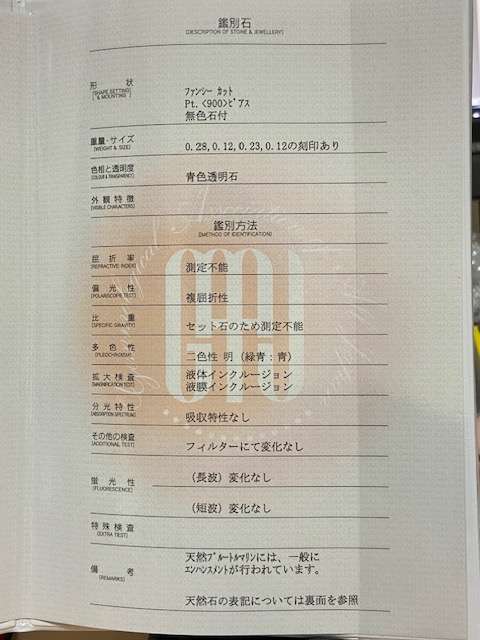 鑑別石
[DESCRIPTION OF STONE & JEWELLERY]
形 状
[SHAPE SETTING & MOUNTING]
ﾌｧﾝｼｰ ｶｯﾄ
Pt.<900>ﾋﾟｱｽ
無色石付
重量・サイズ
[WEIGHT & SIZE]
0.28,0.12,0.23,0.12の刻印あり
色相と透明度
[COLOUR & TRANSPARENCY]
青色透明石
外観特徴
[VISIBLE CHARACTERS]
鑑別方法
[METHOD OF IDENTIFICATION]
屈折率
[REFRACTIVE INDEX]
測定不能
偏光性
[POLARISCOPE TEST]
複屈折性
比 重
[SPECIFIC GRAVITY]
セット石のため測定不能
多色性
[PLEOCHROISM]
二色性 明 (緑青：青)
拡大検査
[MAGNIFICATION TEST]
液体インクルージョン
液膜インクルージョン
分光特性
[ABSORPTION SPECTRUM]
吸収特性なし
その他の検査
[ADDITIONAL TEST]
フィルターにて変化なし
蛍光性
[FLUORESCENCE]
(長波) 変化なし
(短波) 変化なし
特殊検査
[EXTRA TEST]
備 考
[REMARKS]
天然ﾌﾞﾙｰﾄﾙﾏﾘﾝには、一般に
ｴﾝﾊﾝｽﾒﾝﾄが行われています。
天然石の表記については裏面を参照